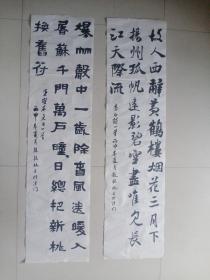 故人西辭黃鶴樓烟花三月下
揚州孤帆遠影碧空盡唯见長
江天際流
李白詩一首
爆竹聲中一歲除春風送暖入
屠蘇千門萬戶曈日總把新桃
換舊符
丙申年夏月